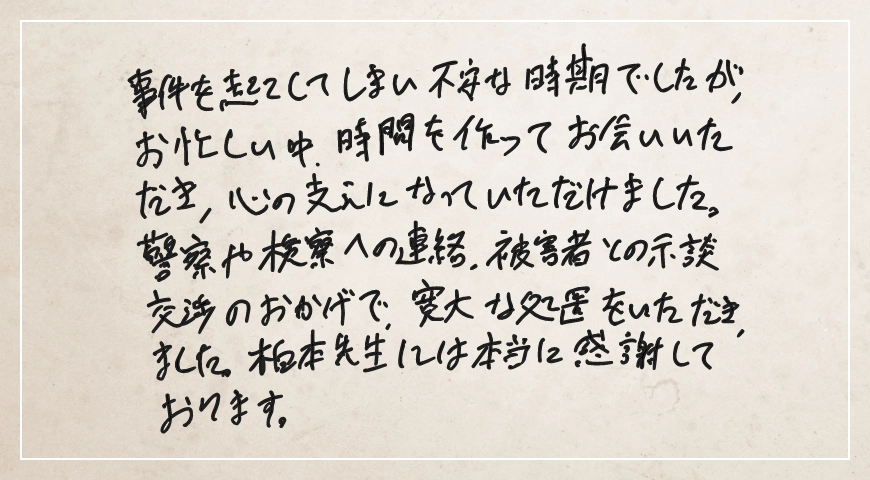 事件を起こしてしまい不安な時期でしたが、
お忙しい中、時間を作ってお会いいた
だき、心の支えになっていただけました。
警察や検察への連絡、被害者との示談
交渉のおかげで、寛大な処置をいただき、
ました。柏本先生には本当に感謝して
おります。